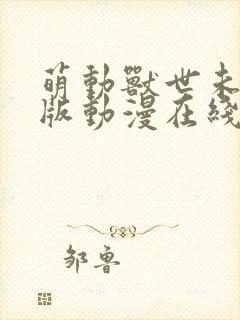 萌動獸世未
版動漫在綫
邹鲁